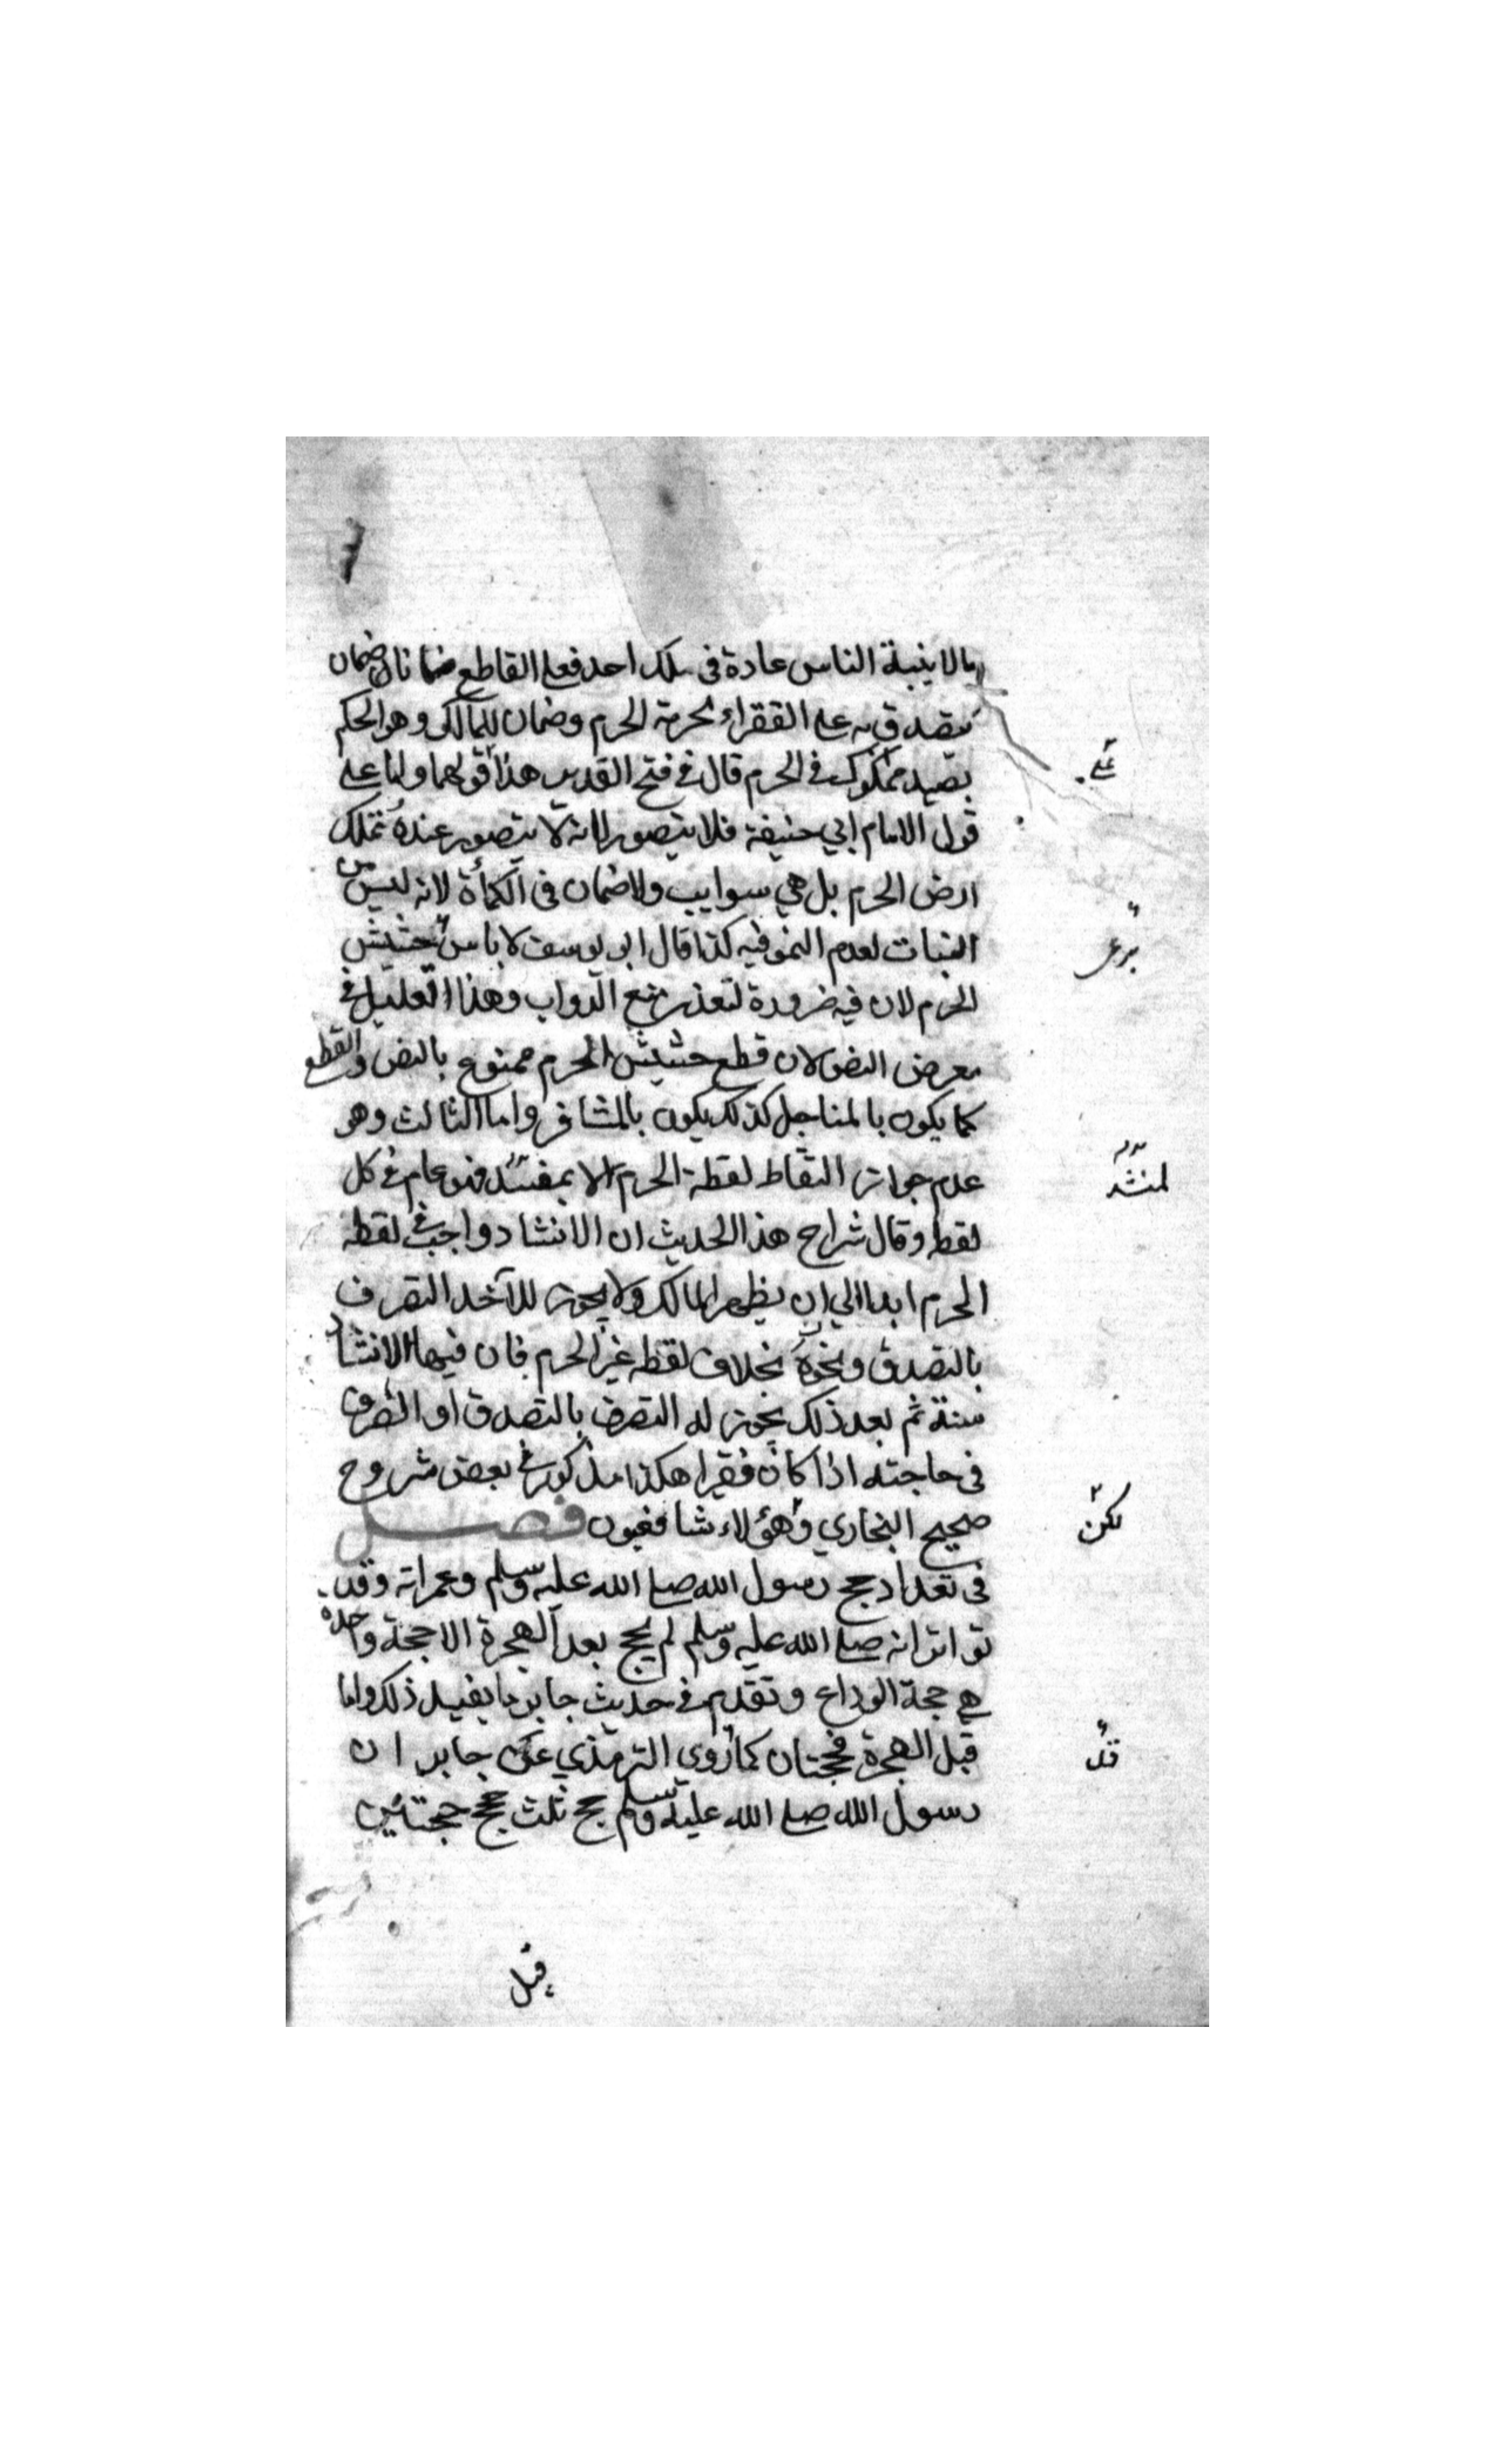 ما لا ينبته الناس عادة في ملك احد فعلى القاطع ضمانان ضمان
يتصدق به على الفقراء لحرمة الحرم وضمان للمالك وهو الحكم
بصيد مملوك في الحرم قال في فتح القدير هذا قولهما واما على
على
قول الامام ابي حنيفة فلا يتصور لانه لا يتصور عنده تملك
ارض الحرم بل هي سوايب ولا ضمان في الكمأة لانه ليس من
النبات لعدم النمو فيه كذا قال ابو يوسف لا باس حشيش
برعي
الحرم لان فيه ضرورة لتعذر منع الدواب وهذا التعليل في
معرض النص لان قطع حشيش الحرم ممنوع بالنص والقطع
كما يكون بالمناجل كذلك يكون بالمشافر واما الثالث وهو
عدم جواز التقاط لقطة الحرم الا فهو عام في كل
لمنشد
لقطه وقال شراح هذا الحديث ان الانشاد واجب في لقطة
الحرم ابدا الي ان يظهر المالك ولا يجوز للآخذ التصرف
بالتصدق ونحوه بخلاف لقطة غير الحرم فان فيها الانشاد
سنة ثم بعد ذلك يجوز له التصرف بالتصدق او الصرف
في حاجته اذا كان فقيرا هكذا مذكور في بعض شروح
صحيح البخاري وهؤلاء شافعيون فصل
لكن
في تعداد حج رسول الله صلى الله عليه وسلم وعمراته وقد
تواتر انه صلى الله عليه وسلم لم يحج بعد الهجرة الا حجة واحدة
هي حجة الوداع وتقدم في حديث جابر ما يفيد ذلك واما
قبل الهجرة فحجتان كما روي الترمذي عن جابر ان
رسول الله صلى الله عليه وسلم حج ثلث حجج حجتين
قبل